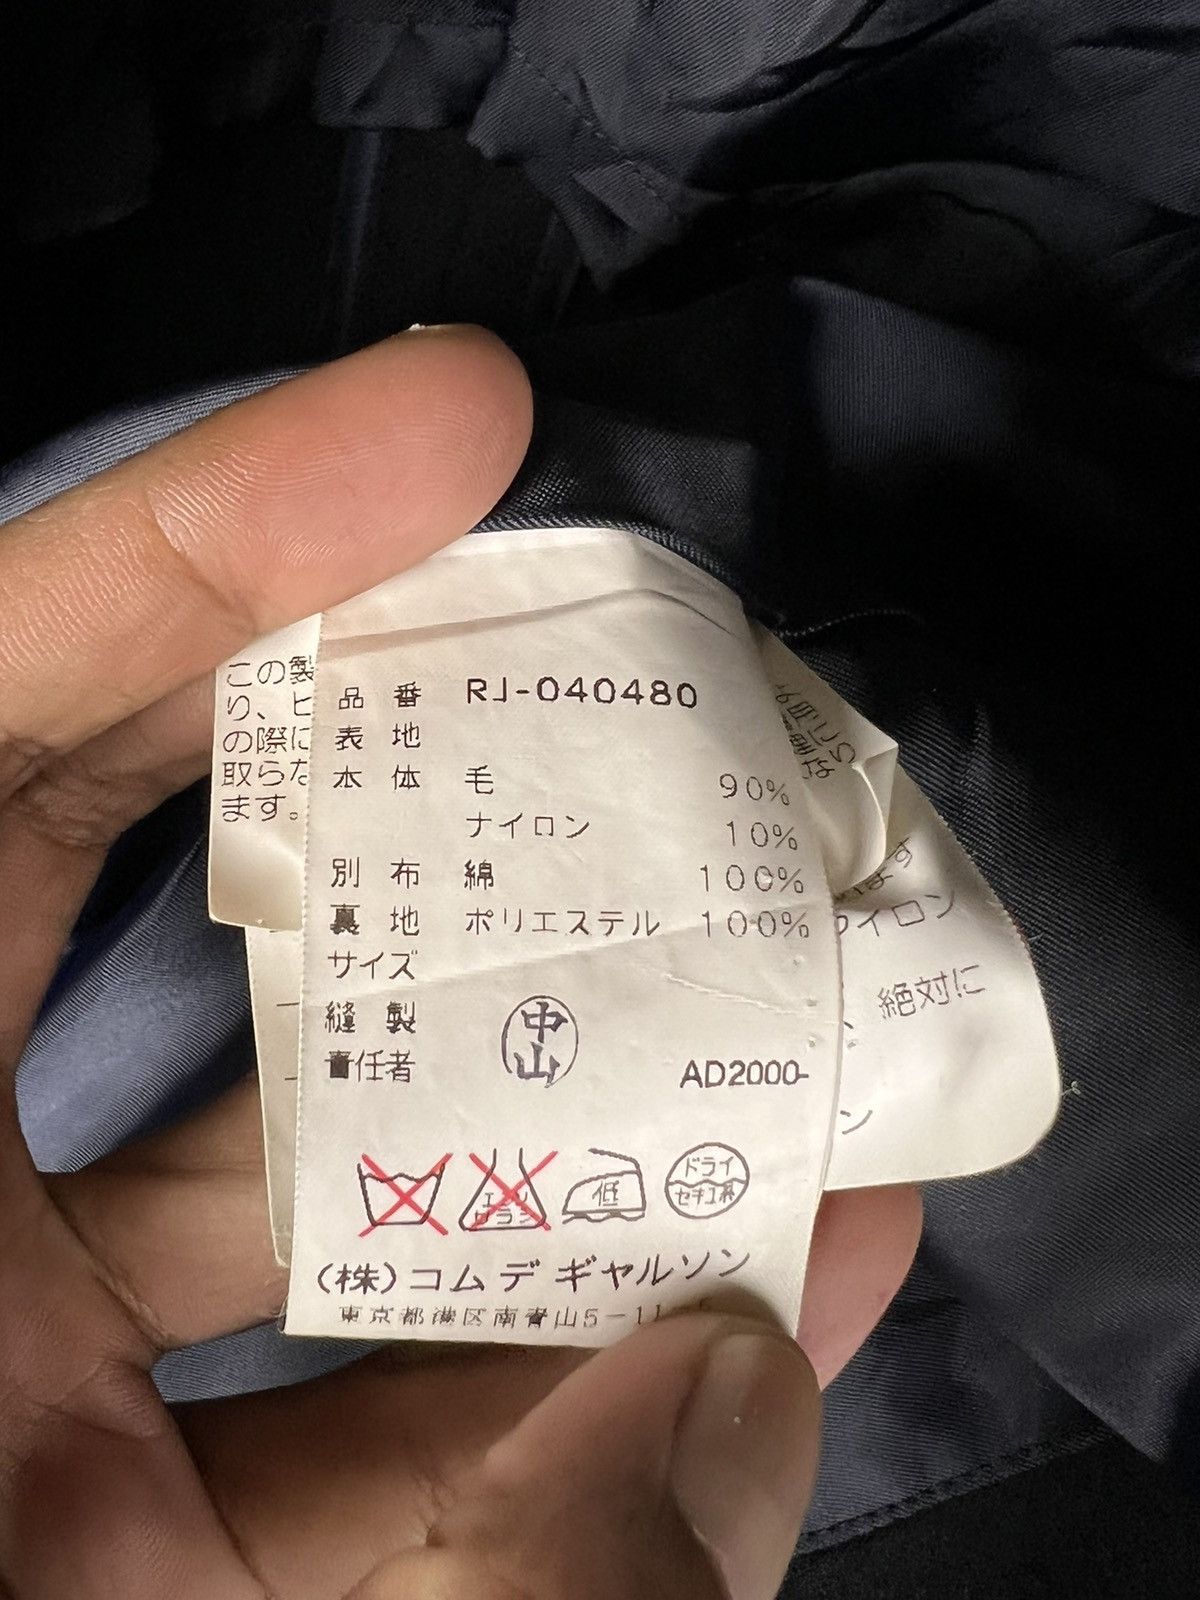 品番 RJ-040480
表地
本体 毛 90%
ナイロン 10%
別布 綿 100%
裏地 ポリエステル 100%
サイズ
縫製
責任者 中山 AD2000-
エンソ
サラシ
低
ドライ
セキユ系
(株)コムデギャルソン
東京都港区南青山5-11
この製
り、ヒ
の際に
取らな
ます。
ます
イロン
絶対に
ン